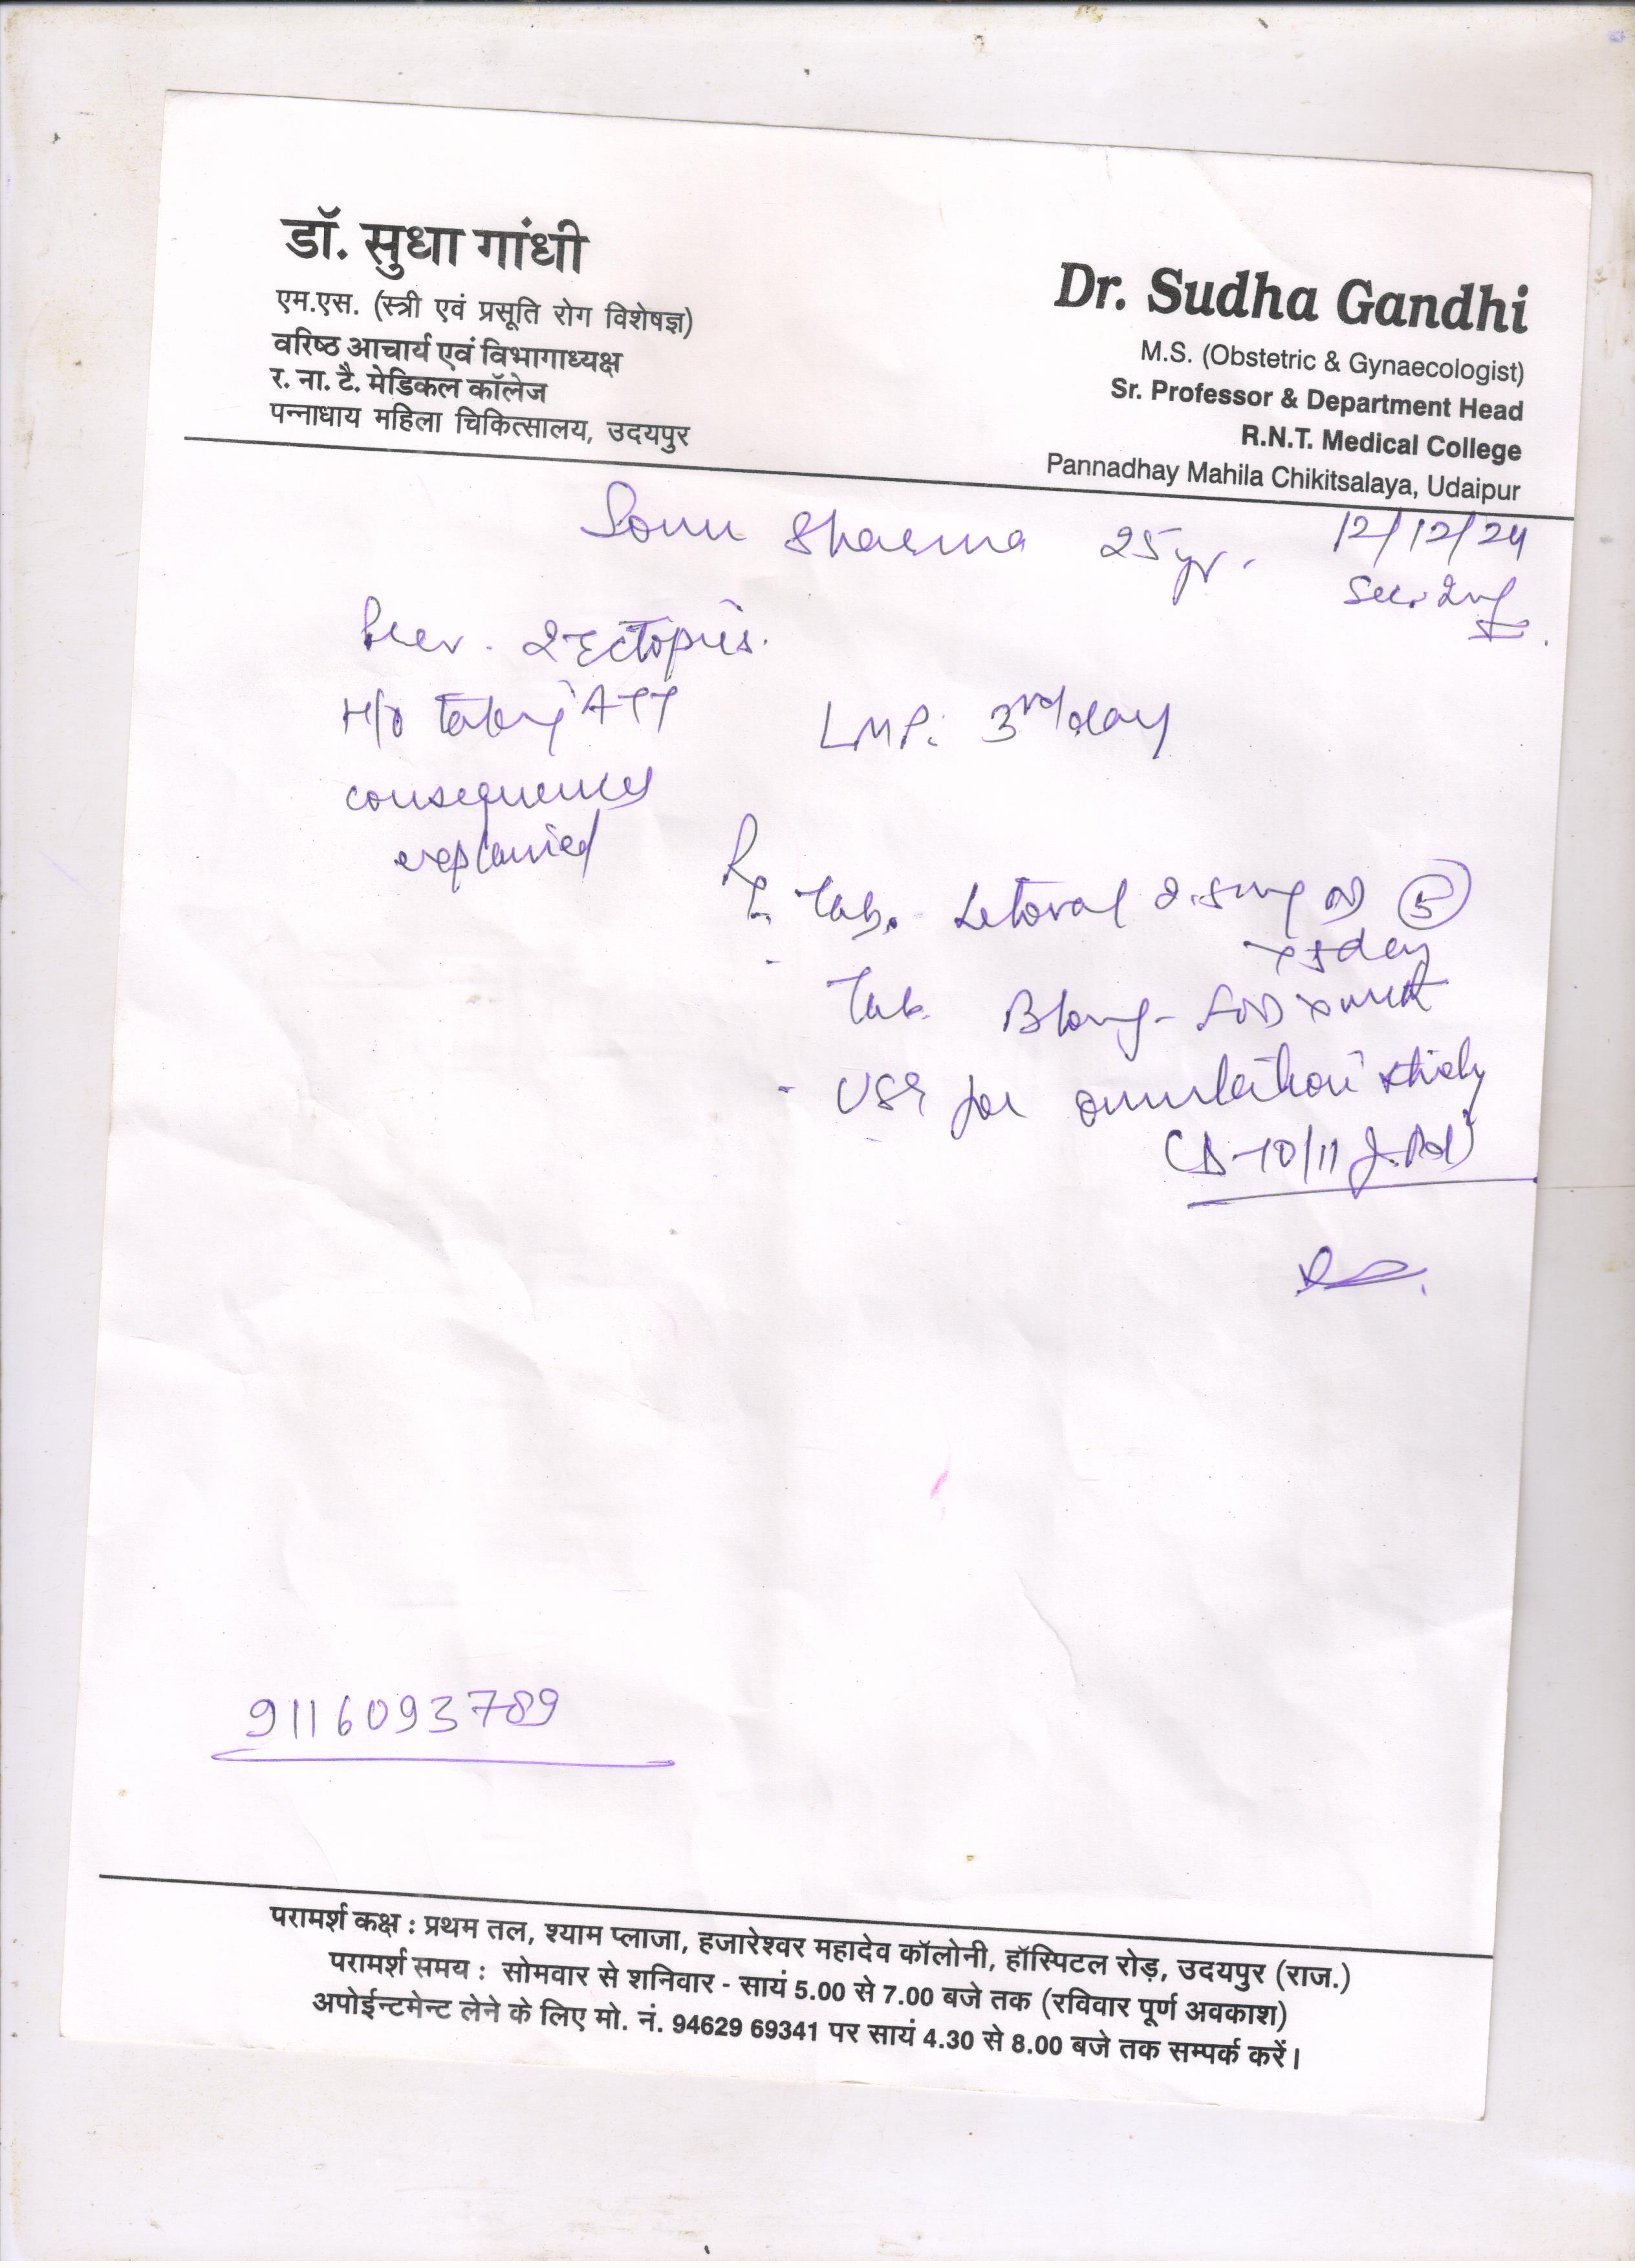 डॉ. सुधा गांधी
एम.एस. (स्त्री एवं प्रसूति रोग विशेषज्ञ)
वरिष्ठ आचार्य एवं विभागाध्यक्ष
र. ना. टै. मेडिकल कॉलेज
पन्नाधाय महिला चिकित्सालय, उदयपुर
Dr. Sudha Gandhi
M.S. (Obstetric & Gynaecologist)
Sr. Professor & Department Head
R.N.T. Medical College
Pannadhay Mahila Chikitsalaya, Udaipur
Sonu Sharma 25 yr.
12/12/24
Sec. Inf
Prev. 2 Ectopics.
H/o taking ATT
LMP: 3rd day
consequences
explained
Rx
Tab. Letoval 2.5mg OD (5)
x 5 day
Tab. OD
- USG for ovulation study
(D-10/11
9116093789
परामर्श कक्ष : प्रथम तल, श्याम प्लाजा, हजारेश्वर महादेव कॉलोनी, हॉस्पिटल रोड़, उदयपुर (राज.)
परामर्श समय : सोमवार से शनिवार - सायं 5.00 से 7.00 बजे तक (रविवार पूर्ण अवकाश)
अपोईन्टमेन्ट लेने के लिए मो. नं. 94629 69341 पर सायं 4.30 से 8.00 बजे तक सम्पर्क करें।